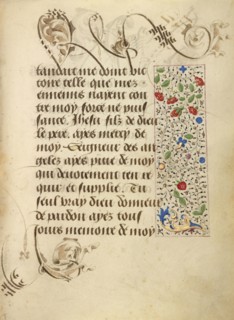 tandat me donne vic
toire telle que mes
ennemis nayent con
tre moy force ne puis
sance. Ihesu filz de dieu
le pere, ayes mercy de
moy. Seigneur des an
geles ayes pitie de moy
qui devotement ten re
quier et supplie. Tu
seul vray dieu donneur
de pardon ayez tous
iours memoire de moy